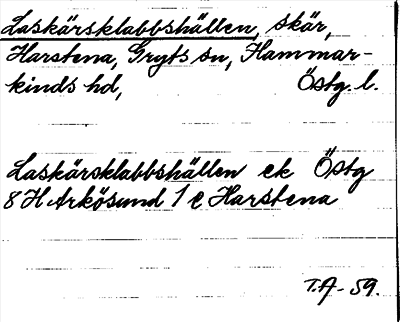 Laskärsklabbshällen, skär,
Harstena, Gryts sn, Hammar-
kinds hd, Östg. l.
Laskärsklabbshällen ek Östg
8 H Arkösund 1 e Harstena
T.A- 59.